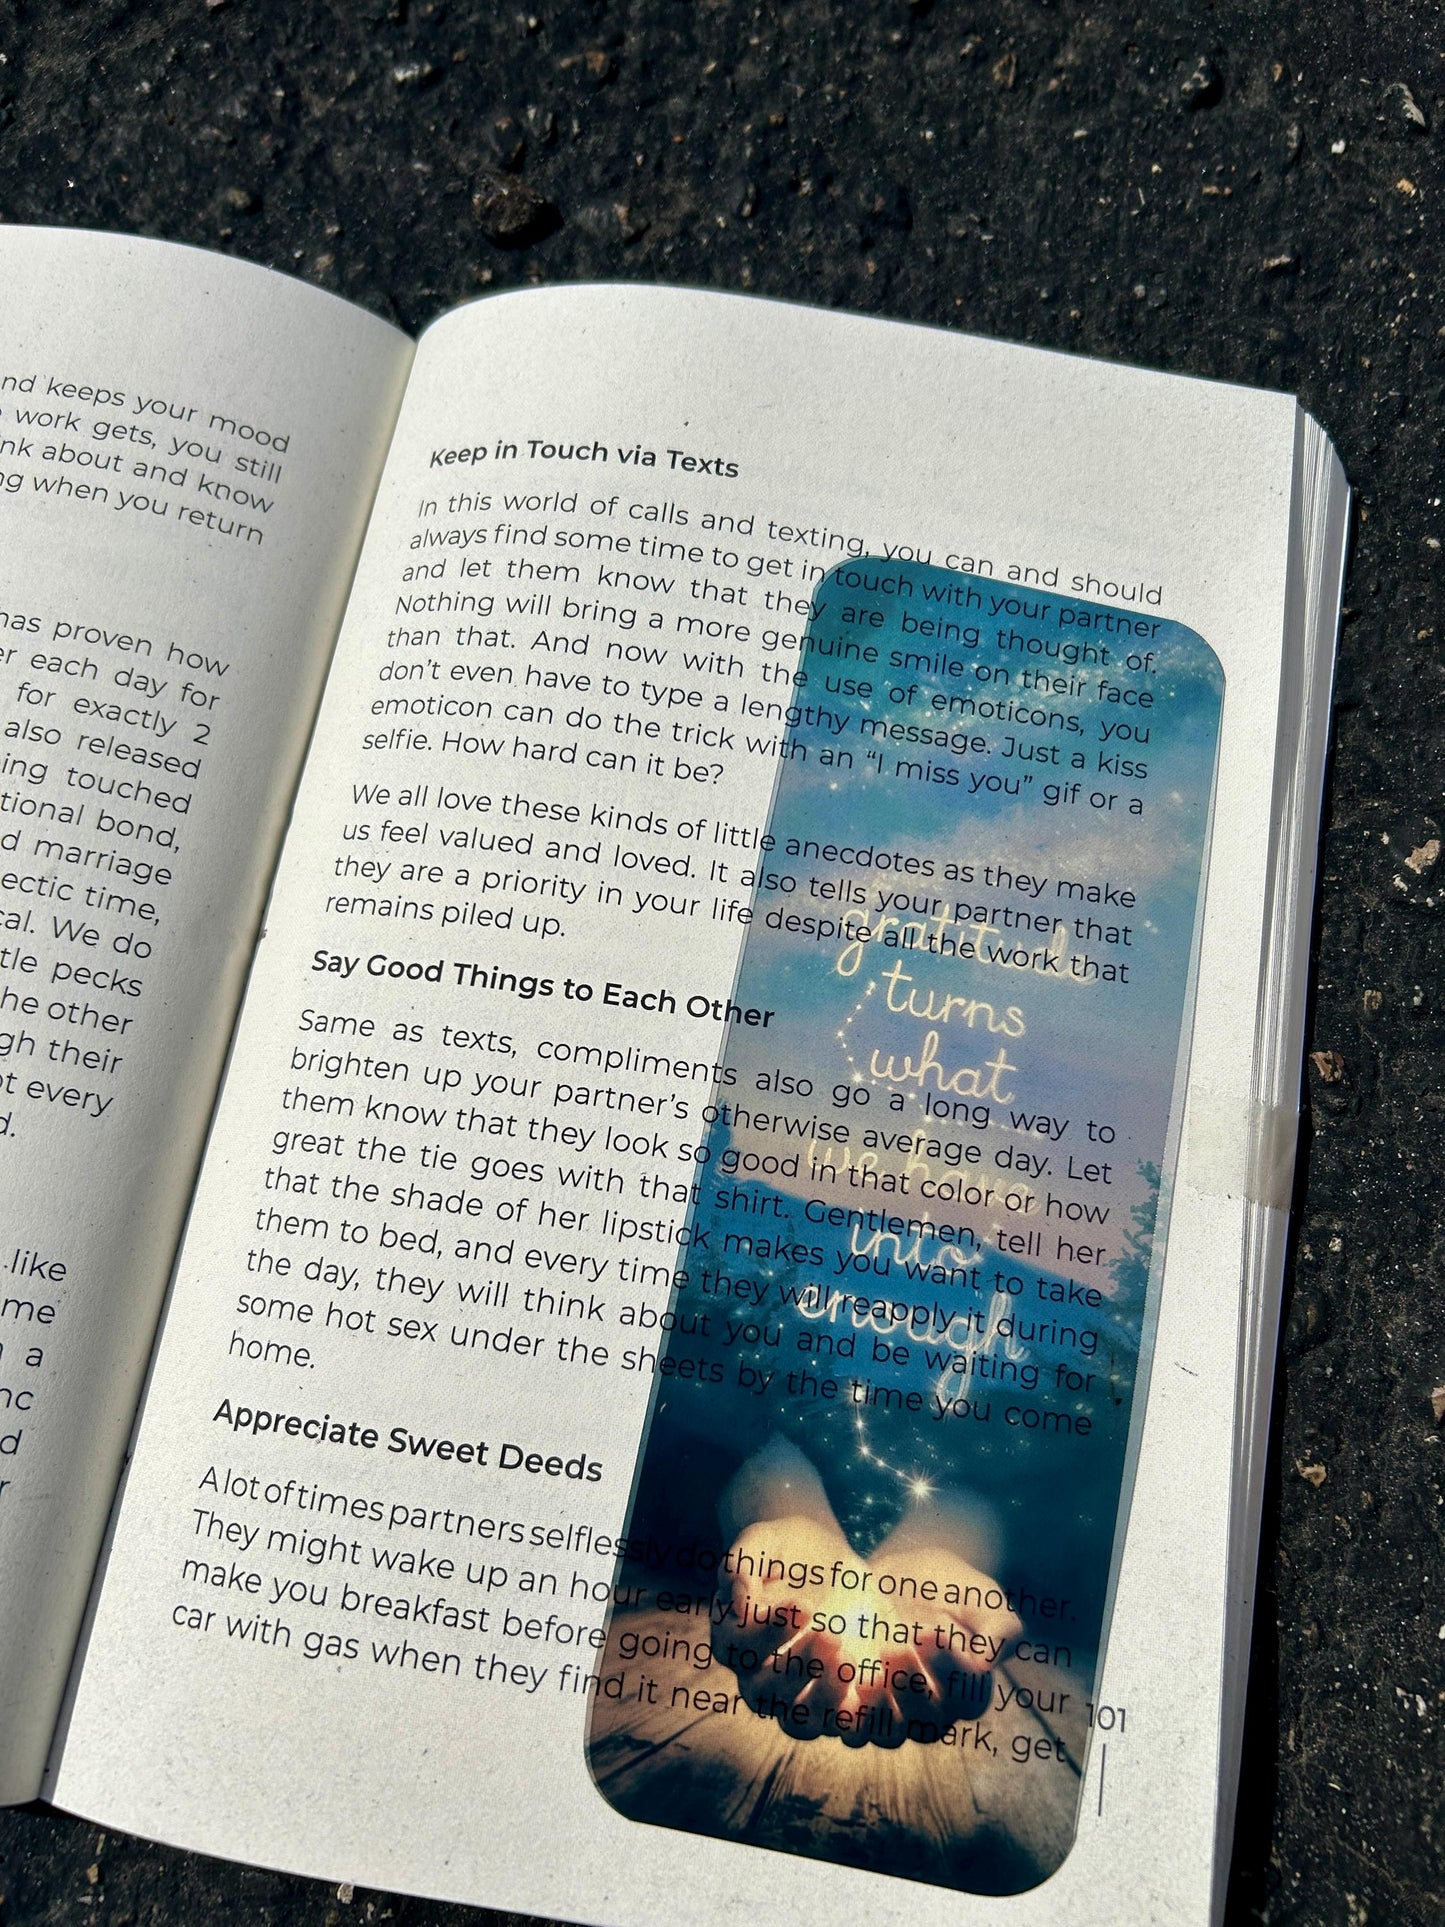 nd keeps your mood
work gets, you still
nk about and know
ng when you return
has proven how
er each day for
for exactly 2
also released
ing touched
tional bond,
d marriage
ectic time,
cal. We do
tle pecks
he other
gh their
ot every
d.
like
me
a
nc
d
r
Keep in Touch via Texts
In this world of calls and texting, you can and should
always find some time to get in touch with your partner
and let them know that they are being thought of.
Nothing will bring a more genuine smile on their face
than that. And now with the use of emoticons, you
don't even have to type a lengthy message. Just a kiss
emoticon can do the trick with an “I miss you” gif or a
selfie. How hard can it be?
We all love these kinds of little anecdotes as they make
us feel valued and loved. It also tells your partner that
they are a priority in your life despite all the work that
remains piled up.
Say Good Things to Each Other
Same as texts, compliments also go a long way to
brighten up your partner's otherwise average day. Let
them know that they look so good in that color or how
great the tie goes with that shirt. Gentlemen, tell her
that the shade of her lipstick makes you want to take
them to bed, and every time they will reapply it during
the day, they will think about you and be waiting for
some hot sex under the sheets by the time you come
home.
Appreciate Sweet Deeds
A lot of times partners selflessly do things for one another.
They might wake up an hour early just so that they can
make you breakfast before going to the office, fill your
car with gas when they find it near the refill mark, get
101
gratitude
turns
what
we have
into
enough